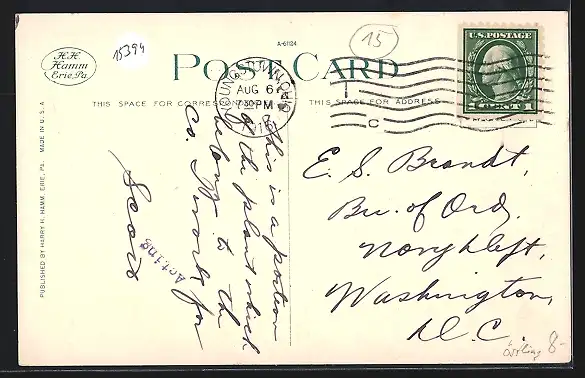 H.H.
Hamm
Erie, Pa.
15394
A-61124
15
POST CARD
THIS SPACE FOR CORRESPONDENCE
THIS SPACE FOR ADDRESS
YOUNGSTOWN, OHIO
AUG 6
7 30 PM
U.S. POSTAGE
1 CENT 1
C
This is a portion
of the plant which
belongs to the
Co. I work for
Scott
Acting
E. S. Brandt,
Bu. of Ord,
Navy Dept,
Washington,
D.C.
8-
PUBLISHED BY HARRY H. HAMM, ERIE, PA. MADE IN U.S.A